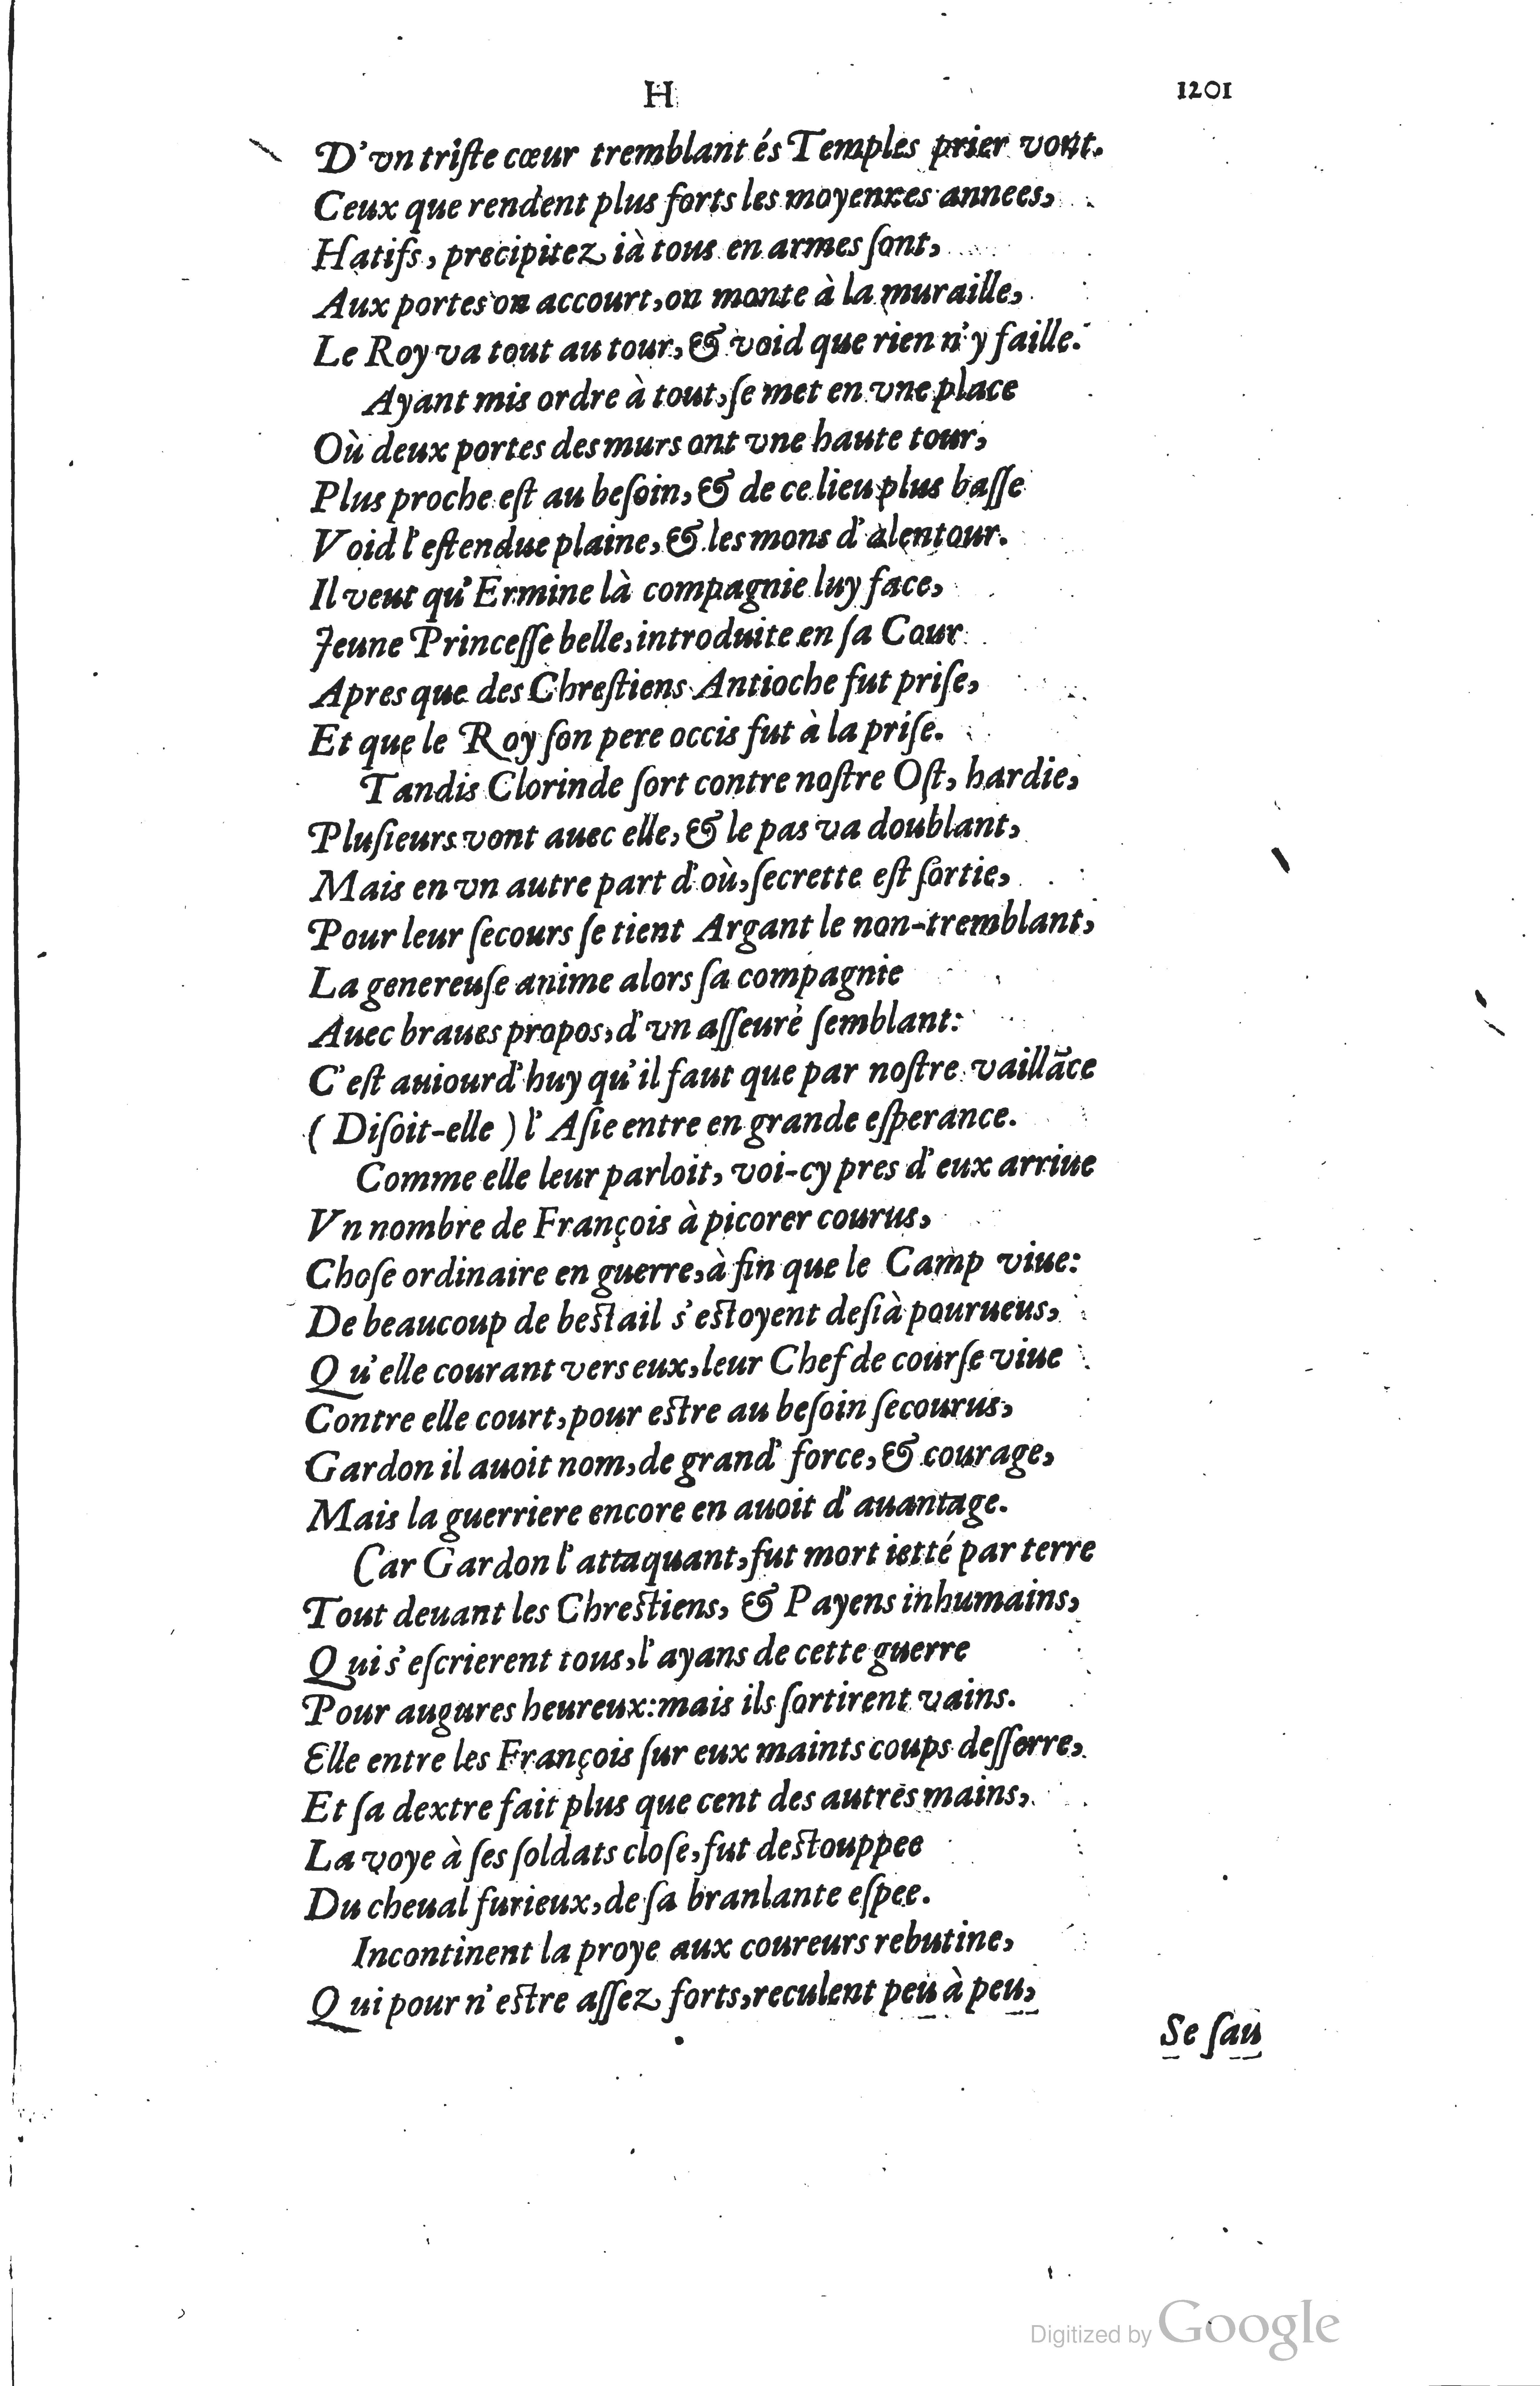 H 1201
D'vn triſte cœur tremblant és Temples prier vont.
Ceux que rendent plus forts les moyennes annees,
Hatifs, precipitez ià tous en armes ſont,
Aux portes on accourt, on monte à la muraille,
Le Roy va tout au tour, & void que rien n'y faille.
Ayant mis ordre à tout, ſe met en vne place
Où deux portes des murs ont vne haute tour,
Plus proche eſt au beſoin, & de ce lieu plus baſſe
Void l'eſtendue plaine, & les mons d'alentour.
Il veut qu'Ermine là compagnie luy face,
Jeune Princeſſe belle, introduite en ſa Cour
Apres que des Chreſtiens Antioche fut priſe,
Et que le Roy ſon pere occis fut à la priſe.
Tandis Clorinde ſort contre noſtre Oſt, hardie,
Pluſieurs vont auec elle, & le pas va doublant,
Mais en vn autre part d'où, ſecrette eſt ſortie,
Pour leur ſecours ſe tient Argant le non-tremblant,
La genereuſe anime alors ſa compagnie
Auec braues propos, d'vn aſſeuré ſemblant:
C'eſt auiourd'huy qu'il faut que par noſtre vaillãce
( Diſoit-elle ) l'Aſie entre en grande eſperance.
Comme elle leur parloit, voi-cy pres d'eux arriue
Vn nombre de François à picorer courus,
Choſe ordinaire en guerre, à fin que le Camp viue:
De beaucoup de beſtail s'eſtoyent deſià pourueus,
Qu'elle courant vers eux, leur Chef de courſe viue
Contre elle court, pour eſtre au beſoin ſecourus,
Gardon il auoit nom, de grand' force, & courage,
Mais la guerriere encore en auoit d'auantage.
Car Gardon l'attaquant, fut mort ietté par terre
Tout deuant les Chreſtiens, & Payens inhumains,
Qui s'eſcrierent tous, l'ayans de cette guerre
Pour augures heureux: mais ils ſortirent vains.
Elle entre les François ſur eux maints coups deſſerre,
Et ſa dextre fait plus que cent des autres mains,
La voye à ſes ſoldats cloſe, fut deſtouppee
Du cheual furieux, de ſa branlante eſpee.
Incontinent la proye aux coureurs rebutine,
Qui pour n'eſtre aſſez forts, reculent peu à peu,
Se ſau
Digitized by Google